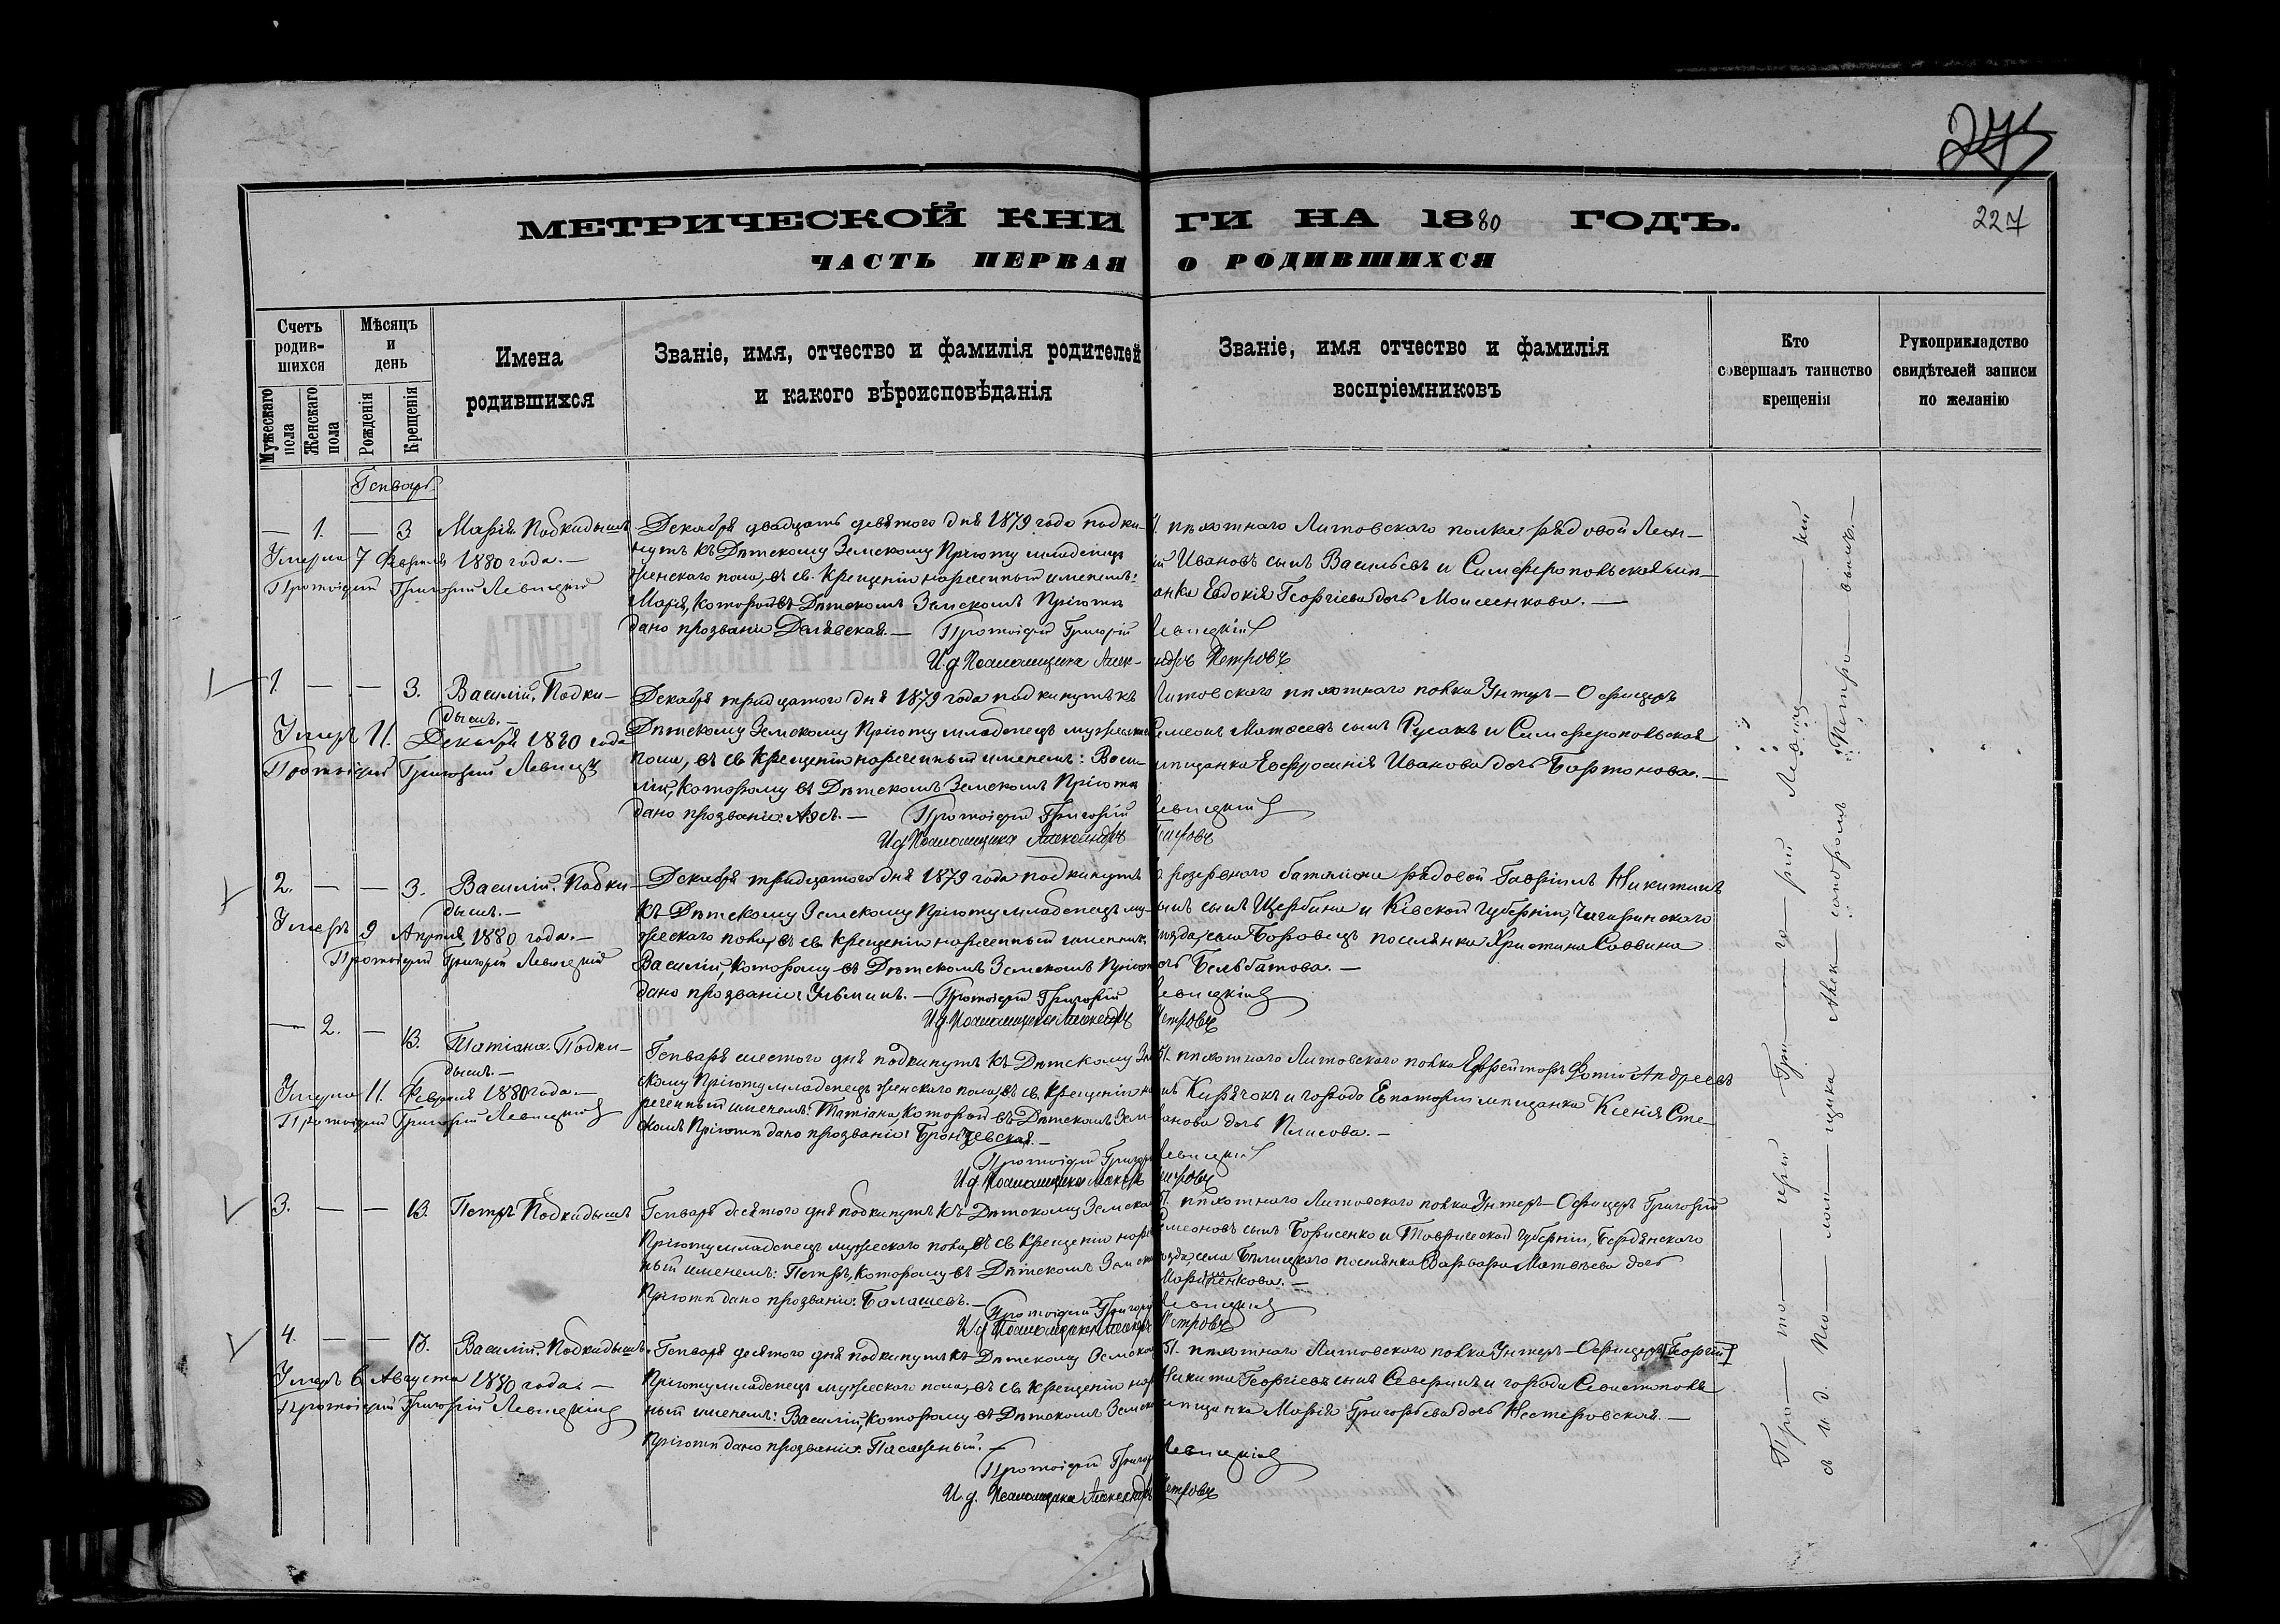 275
227
МЕТРИЧЕСКОЙ КНИГИ НА 1880 ГОДЪ.
ЧАСТЬ ПЕРВАЯ О РОДИВШИХСЯ
Счетъ родив-шихся
Мужескаго пола
Женскаго пола
Мѣсяцъ и день
Рожденія
Крещенія
Имена родившихся
Званіе, имя, отчество и фамилія родителей и какого вѣроисповѣданія
Званіе, имя отчество и фамилія воспріемниковъ
Кто совершалъ таинство крещенія
Рукоприкладство свидѣтелей записи по желанію
Генварь
— 1. — 3 Марія. Подкидышъ
Умерла 7 Февраля 1880 года. —
Протоіерей Григорій Левицкій
Декабря двадцать девятого дня 1879 года подки-
нутъ къ Дѣтскому Земскому Пріюту младенецъ
женскаго пола, въ св. Крещеніи нареченный именемъ:
Марія, которой въ Дѣтскомъ Земскомъ Пріютѣ
дано прозваніе — Протоіерей Григорій Левицкій
И.д. Псаломщика Александръ Петровъ
пѣхотнаго Литовскаго полка рядовой Леон-
ій Ивановъ сынъ Васильевъ и Симферопольская мѣ-
анка Евдокія Георгіева дочь Моисеенкова. —
1. — — 3. Василій. Подки-
дышъ. —
Умеръ 11. Декабря 1880 года
Протоіерей Григорій Левицкій
Декабря тридцатого дня 1879 года подкинутъ къ
Дѣтскому Земскому Пріюту младенецъ мужеска
пола, въ св Крещеніи нареченный именемъ: Васи-
лій, которому въ Дѣтскомъ Земскомъ Пріютѣ
дано прозваніе: — Протоіерей Григорій Левицкій
И.д. Псаломщика Александръ Петровъ
Литовскаго пѣхотнаго полка Унтеръ-Офицеръ
Симеонъ Матѳеевъ сынъ Русакъ и Симферопольская
мѣщанка Евфросинія Иванова дочь Бартонова. —
2. — — 3. Василій. Подки-
дышъ. —
Умеръ 9 Апрѣля 1880 года. —
Протоіерей Григорій Левицкій
Декабря тридцатого дня 1879 года подкинутъ
къ Дѣтскому Земскому Пріюту младенецъ му-
жескаго пола, въ св. Крещеніи нареченный именемъ:
Василій, которому въ Дѣтскомъ Земскомъ Пріютѣ
дано прозваніе: Ульминъ. — Протоіерей Григорій Левицкій
И.д. Псаломщика Александръ Петровъ
резервнаго баталіона рядовой Гавріилъ Никитинъ
сынъ Щербина и Кіевской губерніи, Чигиринскаго
уѣзда, села Боровицъ поселянка Христина Саввина
дочь Бельбатова. —
— 2. — 13. Татіана. Подки-
дышъ. —
Умерла 11. Февраля 1880 года. —
Протоіерей Григорій Левицкій
Генваря шестого дня подкинутъ къ Дѣтскому Зем-
скому Пріюту младенецъ женскаго пола, въ св. Крещеніи на
реченный именемъ: Татіана, которой въ Дѣтскомъ Зем-
скомъ Пріютѣ дано прозваніе: Бронзевская. —
Протоіерей Григорій Левицкій
И.д. Псаломщика Александръ Петровъ
51. пѣхотнаго Литовскаго полка Ефрейторъ Фотій Андреевъ
сынъ Кирячокъ и города Евпаторіи мѣщанка Ксенія Сте-
панова дочь Плисова. —
3. — — 13. Петръ Подкидышъ
Генваря десятого дня подкинутъ къ Дѣтскому Земско
Пріюту младенецъ мужескаго пола, въ св Крещеніи наре
ный именемъ: Петръ, которому въ Дѣтскомъ Земско
Пріютѣ дано прозваніе: Балашевъ. —
Протоіерей Григорій Левицкій
И.д. Псаломщика Александръ Петровъ
51. пѣхотнаго Литовскаго полка Унтеръ-Офицеръ Григорій
Симеоновъ сынъ Борисенко и Таврической губерніи, Бердянскаго
уѣзда, села Бѣлицкаго поселянка Варвара Матвѣева дочь
4. — — 13. Василій. Подкидышъ.
Умеръ 6 Августа 1880 года. —
Протоіерей Григорій Левицкій
Генваря десятого дня подкинутъ къ Дѣтскому Земско
Пріюту младенецъ мужескаго пола, въ св Крещеніи наре
ный именемъ: Василій, которому въ Дѣтскомъ Земско
Пріютѣ дано прозваніе:
Протоіерей Григорій Левицкій
И.д. Псаломщика Александръ Петровъ
51. пѣхотнаго Литовскаго полка Унтеръ-Офицеръ [Георгій]
Никита Георгіевъ сынъ Северинъ и города Севастополь
мѣщанка Марія Григорьева дочь Нестеровская. —
Про—то—іерей Гри—го—рій Левиц—кій
съ и д. Пса—лом—щика Алек—сандромъ Петро—вымъ. —